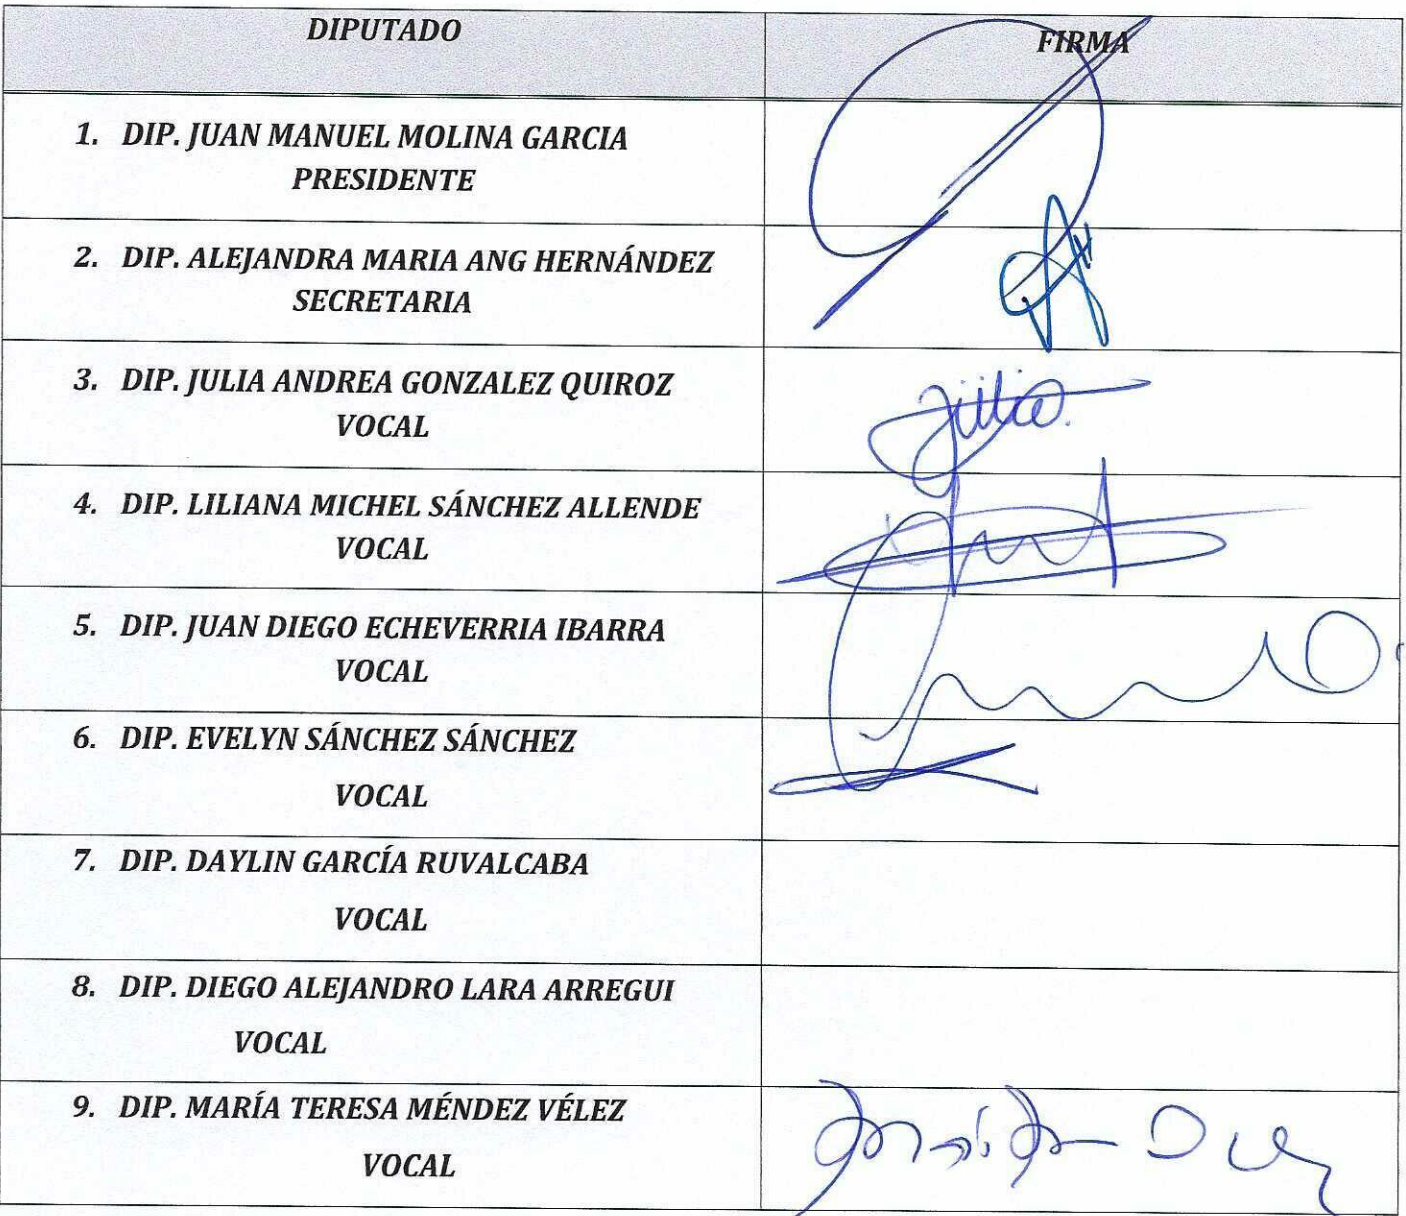 DIPUTADO FIRMA
1. DIP. JUAN MANUEL MOLINA GARCIA
PRESIDENTE
2. DIP. ALEJANDRA MARIA ANG HERNÁNDEZ
SECRETARIA
3. DIP. JULIA ANDREA GONZALEZ QUIROZ
VOCAL
Julia.
4. DIP. LILIANA MICHEL SÁNCHEZ ALLENDE
VOCAL
5. DIP. JUAN DIEGO ECHEVERRIA IBARRA
VOCAL
6. DIP. EVELYN SÁNCHEZ SÁNCHEZ
VOCAL
7. DIP. DAYLIN GARCÍA RUVALCABA
VOCAL
8. DIP. DIEGO ALEJANDRO LARA ARREGUI
VOCAL
9. DIP. MARÍA TERESA MÉNDEZ VÉLEZ
VOCAL